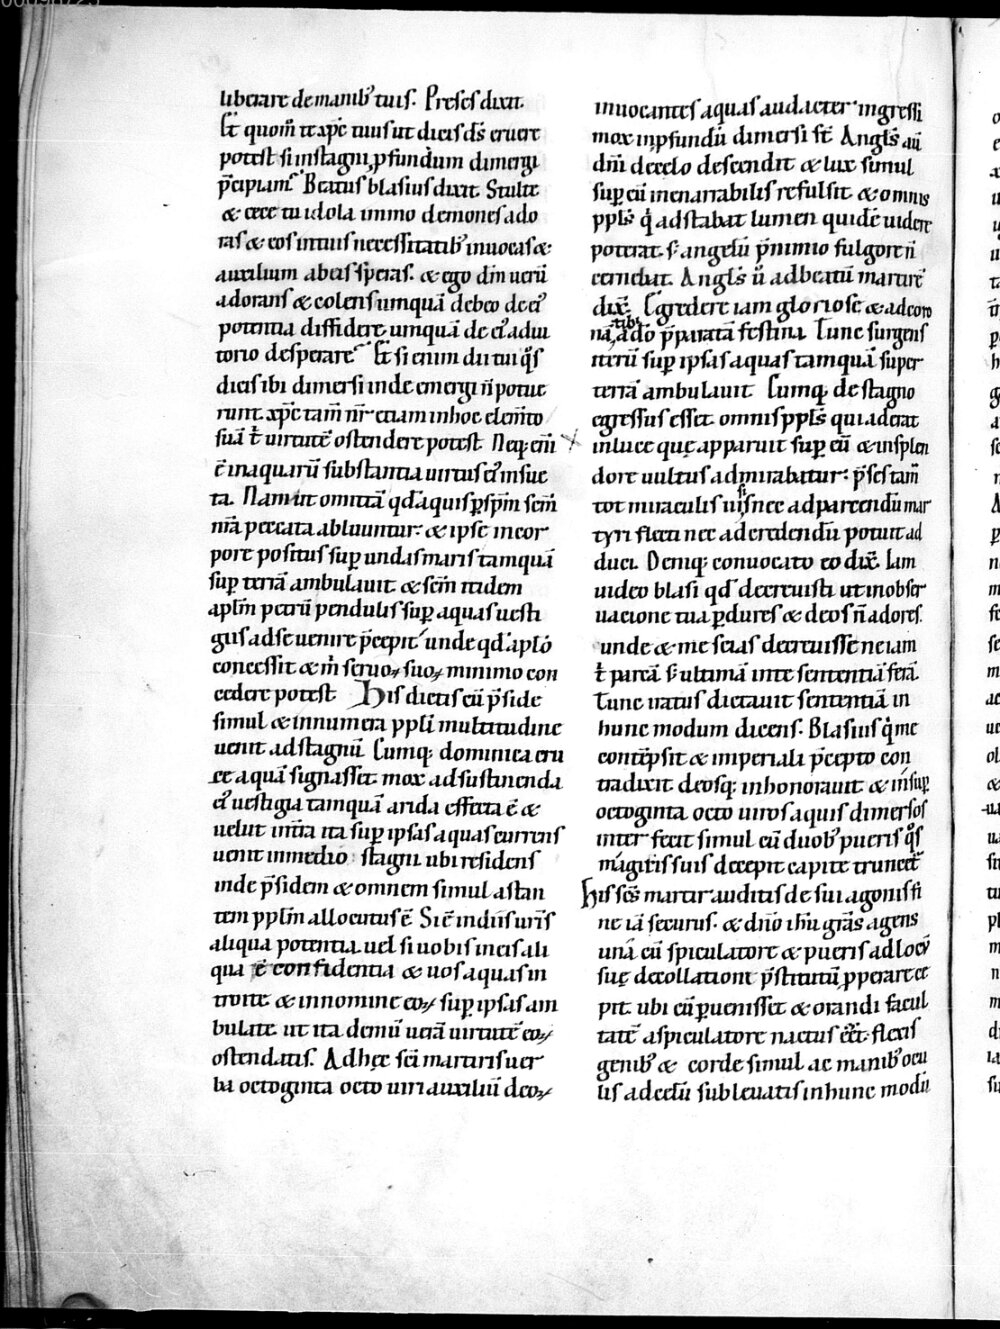 liberare de manib; tuis. Preses dixit.
Et quom̄ te xp̄c tuus ut dicis d̄s eruere
potest si in stagni ꝓfundum dimergi
p̄cipiam. Beatus blasius dixit Stulte
& cece tu idola immo demones ado
ras & eos in tuis necessitatib; inuocas &
auxilium ab eis speras. & ego dm̄ uerū
adorans & colens umquā debeo de ei᷒
potentia diffidere umquā de ei᷒ adiu
torio desperare. Et si enim dii tui q̊s
dicis ibi dimersi inde emergi n̄ potue
runt. xp̄c tam̄ nr̄ etiam in hoc elem̄to
suā ł uirtutē ostendere potest. Neq; eni̅
ē in aquarū substantia uirtus ei᷒ insue
ta. Nam ut omittā qd̄ aquis ꝑ sp̄m sem̄
nr̄a peccata abluuntur. & ipse in cor
pore positus sup̱ undas maris tamquā
sup̱ terrā ambulauit & sem̄ itidem
aplm̄ petrū pendulis sup̱ aquas uesti
giis ad se uenire p̄cepit unde qd̄ aplo̅
concessit & m̄ seruoꝝ suoꝝ minimo con
cedere potest His dictis cū p̄side
simul & innumera ppli̅ multitudine
uenit ad stagnū. Cumq; dominica cru
ce aquā signasset mox ad sustinenda
ei᷒ uestigia tamquā arida effecta ē &
uelut in t̄ra ita sup̱ ipsas aquas currens
uenit in medio stagni ubi residens
inde p̄sidem & omnem simul astan
tem pplm̄ allocutus ē. Si ē in diis ur̄is
aliqua potentia uel si uobis in eis ali
qua ē confidentia & uos aquas in
troite & in nomine eoꝝ sup̱ ipsas am
bulate ut ita demū uerā uirtutē eoꝝ
ostendatis. Ad hęc sci̅ martiris uer
ba octoginta octo uiri auxiliū deoꝝ
inuocantes aquas audacter ingressi
mox in ꝓfundū dimersi st̄. Angls̄ au̅
dni̅ de celo descendit & lux simul
sup̱ eū inenarrabilis refulsit & omnis
ppls̄ q̇ adstabat lumen quidē uidere
poterat. s; angelū p̄ nimio fulgore n̄
cernebat. Angls̄ u̅ ad beatū martirē
dix̄. Egredere iam gloriose & ad coro
nā tibi a do p̄paratā festina. Tunc surgens
iterū sup̱ ipsas aquas tamquā super
terrā ambulauit. Cumq; de stagno
egressus esset omnis ppls̄ qui aderat
in luce quę apparuit sup̱ eū & in splen
dore uultus admirabatur. p̄ses tam̄
tot miraculis uisis nec ad parcendū mar
tyri flecti nec ad credendū potuit ad
duci. Deniq; conuocato eo dix̄. Iam
uideo blasi qd̄ decreuisti ut in obser
uacione tua ꝑdures & deos n̄ adores.
unde & me scias decreuisse ne iam
ł parcā s; ultimā in te sententiā ferā.
Tunc iratus dictauit sententiā in
hunc modum dicens. Blasius q̇ me
contēpsit & imperiali p̄cepto con
tradixit deosq; inhonorauit & insup̱
octoginta octo uiros aquis dimersos
inter fecit simul cū duob; pueris q̊s
magicis suis decepit capite truncet᷑
His scs̄ martir auditis de sui agonis fi
ne iā securus. & dn̄o ihū grās agens
unā cū spiculatore & pueris ad locū
suę decollationi p̄stitutū ꝓperare ce
pit. ubi cū ꝑuenisset & orandi facul
tatē a spiculatore nactus eēt. flexis
genib; & corde simul ac manib; ocu
lis ad celū subleuatis in hunc modū